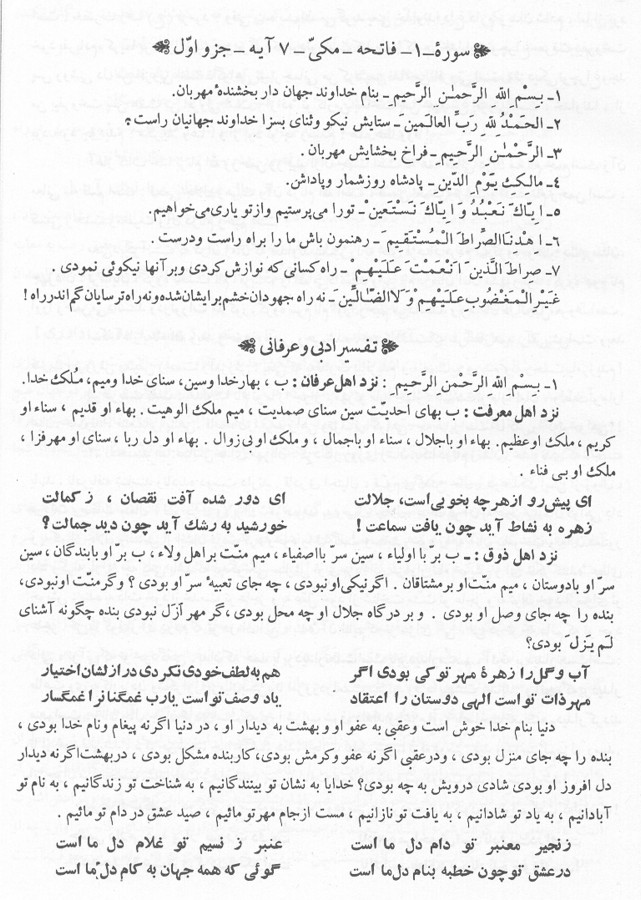 سورهٔ ـ۱ـ فاتحه ـ مکیّ ـ ۷ آیه ـ جزو اوّل
۱ـ بِسْمِ اللهِ الرَّحْمٰنِ الرَّحیمِ ـ بنام خداوند جهان دار بخشندهٔ مهربان.
۲ـ الحَمْدُ لِلّهِ رَبِّ العالَمینَ ـ ستایش نیکو وثنای بسزا خداوند جهانیان راست؟
۳ـ الرَّحْمٰنِ الرَّحیمِ ـ فراخ بخشایش مهربان
۴ـ مالِکِ یَوْمِ الدّینِ ـ پادشاه روزشمار وپاداش.
۵ـ اِیّاکَ نَعْبُدُ وَ اِیّاکَ نَسْتَعین ـ تورا می‌پرستیم وازتو یاری‌می‌خواهیم.
۶ـ اِهْدِنَا الصِّراطَ المُسْتَقیمَ ـ رهنمون باش ما را براه راست ودرست.
۷ـ صِراطَ الَّذینَ اَنْعَمْتَ عَلَیْهِمْ ـ راه کسانی که نوازش کردی وبر آنها نیکوئی نمودی.
غَیْرِ الْمَغْضُوبِ عَلَیْهِمْ وَلاَ الضّالّینَ ـ نه راه جهودان‌خشم‌برایشان‌شده‌ونه راه‌ترسایان گم‌اندر راه!
تفسیر ادبی و عرفانی
۱ـ بِسم اللهِ الرَّحْمٰنِ الرَّحیمِ: نزد اهل عرفان: ب، بهارخدا وسین، سنای خدا ومیم، مُلک خدا.
نزد اهل معرفت: ب بهای احدیّت سین سنای صمدیت، میم ملک الوهیت. بهاء او قدیم، سناء او
کریم، ملک اوعظیم. بهاء او باجلال، سناء او باجمال، و ملک او بی‌زوال. بهاء او دل ربا، سنای او مهرفزا،
ملک او بی فناء.
ای پیش‌رو ازهرچه بخوبی‌است، جلالت ای دور شده آفت نقصان، ز کمالت
زهره به نشاط آید چون یافت سماعت! خورشید به رشك آید چون دید جمالت؟
نزد اهل ذوق: ـ ب بر با اولیاء، سین سرّ با اصفیاء، میم منّت بر اهل ولاء، ب بر او بابندگان، سین
سرّ او بادوستان، میم منّت او برمشتاقان. اگرنیکی‌اونبودی، چه جای تعبیهٔ سرّ او بودی؟ وگرمنّت اونبودی،
بنده را چه جای وصل او بودی. و بر درگاه جلال او چه محل بودی، گر مهر ازل نبودی بنده چگونه آشنای
لَم یزل بودی؟
آب وگل را زهرهٔ مهر تو کی بودی اگر هم به لطف خودی نکردی در ازلشان اختیار
مهر ذات تو است الهی دوستان را اعتقاد یاد وصف تو است یارب غمگنانرا غمگسار
دنیا بنام خدا خوش است وعقبی به عفو او و بهشت به دیدار او، در دنیا اگرنه پیغام ونام خدا بودی،
بنده را چه جای منزل بودی، ودرعقبی اگرنه عفو وکرمش بودی، کاربنده مشکل بودی، دربهشت‌اگرنه دیدار
دل افروز او بودی شادی درویش به چه بودی؟ خدایا به نشان تو بینندگانیم، به شناخت تو زندگانیم، به نام تو
آبادانیم، به یاد تو شادانیم، به یافت تو نازانیم، مست ازجام مهر تو مائیم، صید عشق در دام تو مائیم.
زنجیر معنبر تو دام دل ما است عنبر ز نسیم تو غلام دل ما است
درعشق تو چون خطبه بنام دل‌ما است گوئی که همه جهان به کام دل ما است